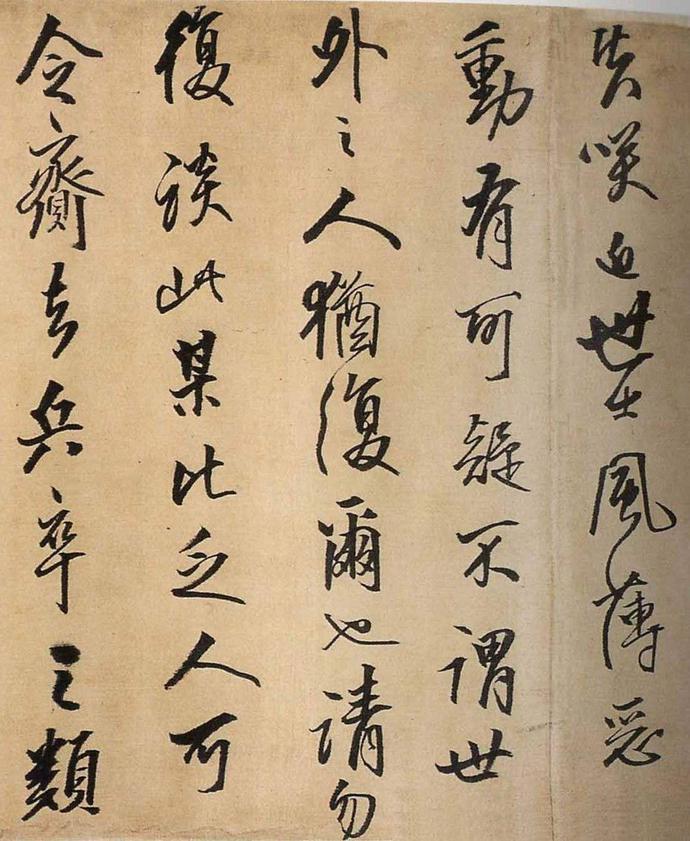 失咲近世士風薄惡
動有可疑不謂世
外之人猶復爾也請勿
復談此某比乏人可
令齎去兵卒之類